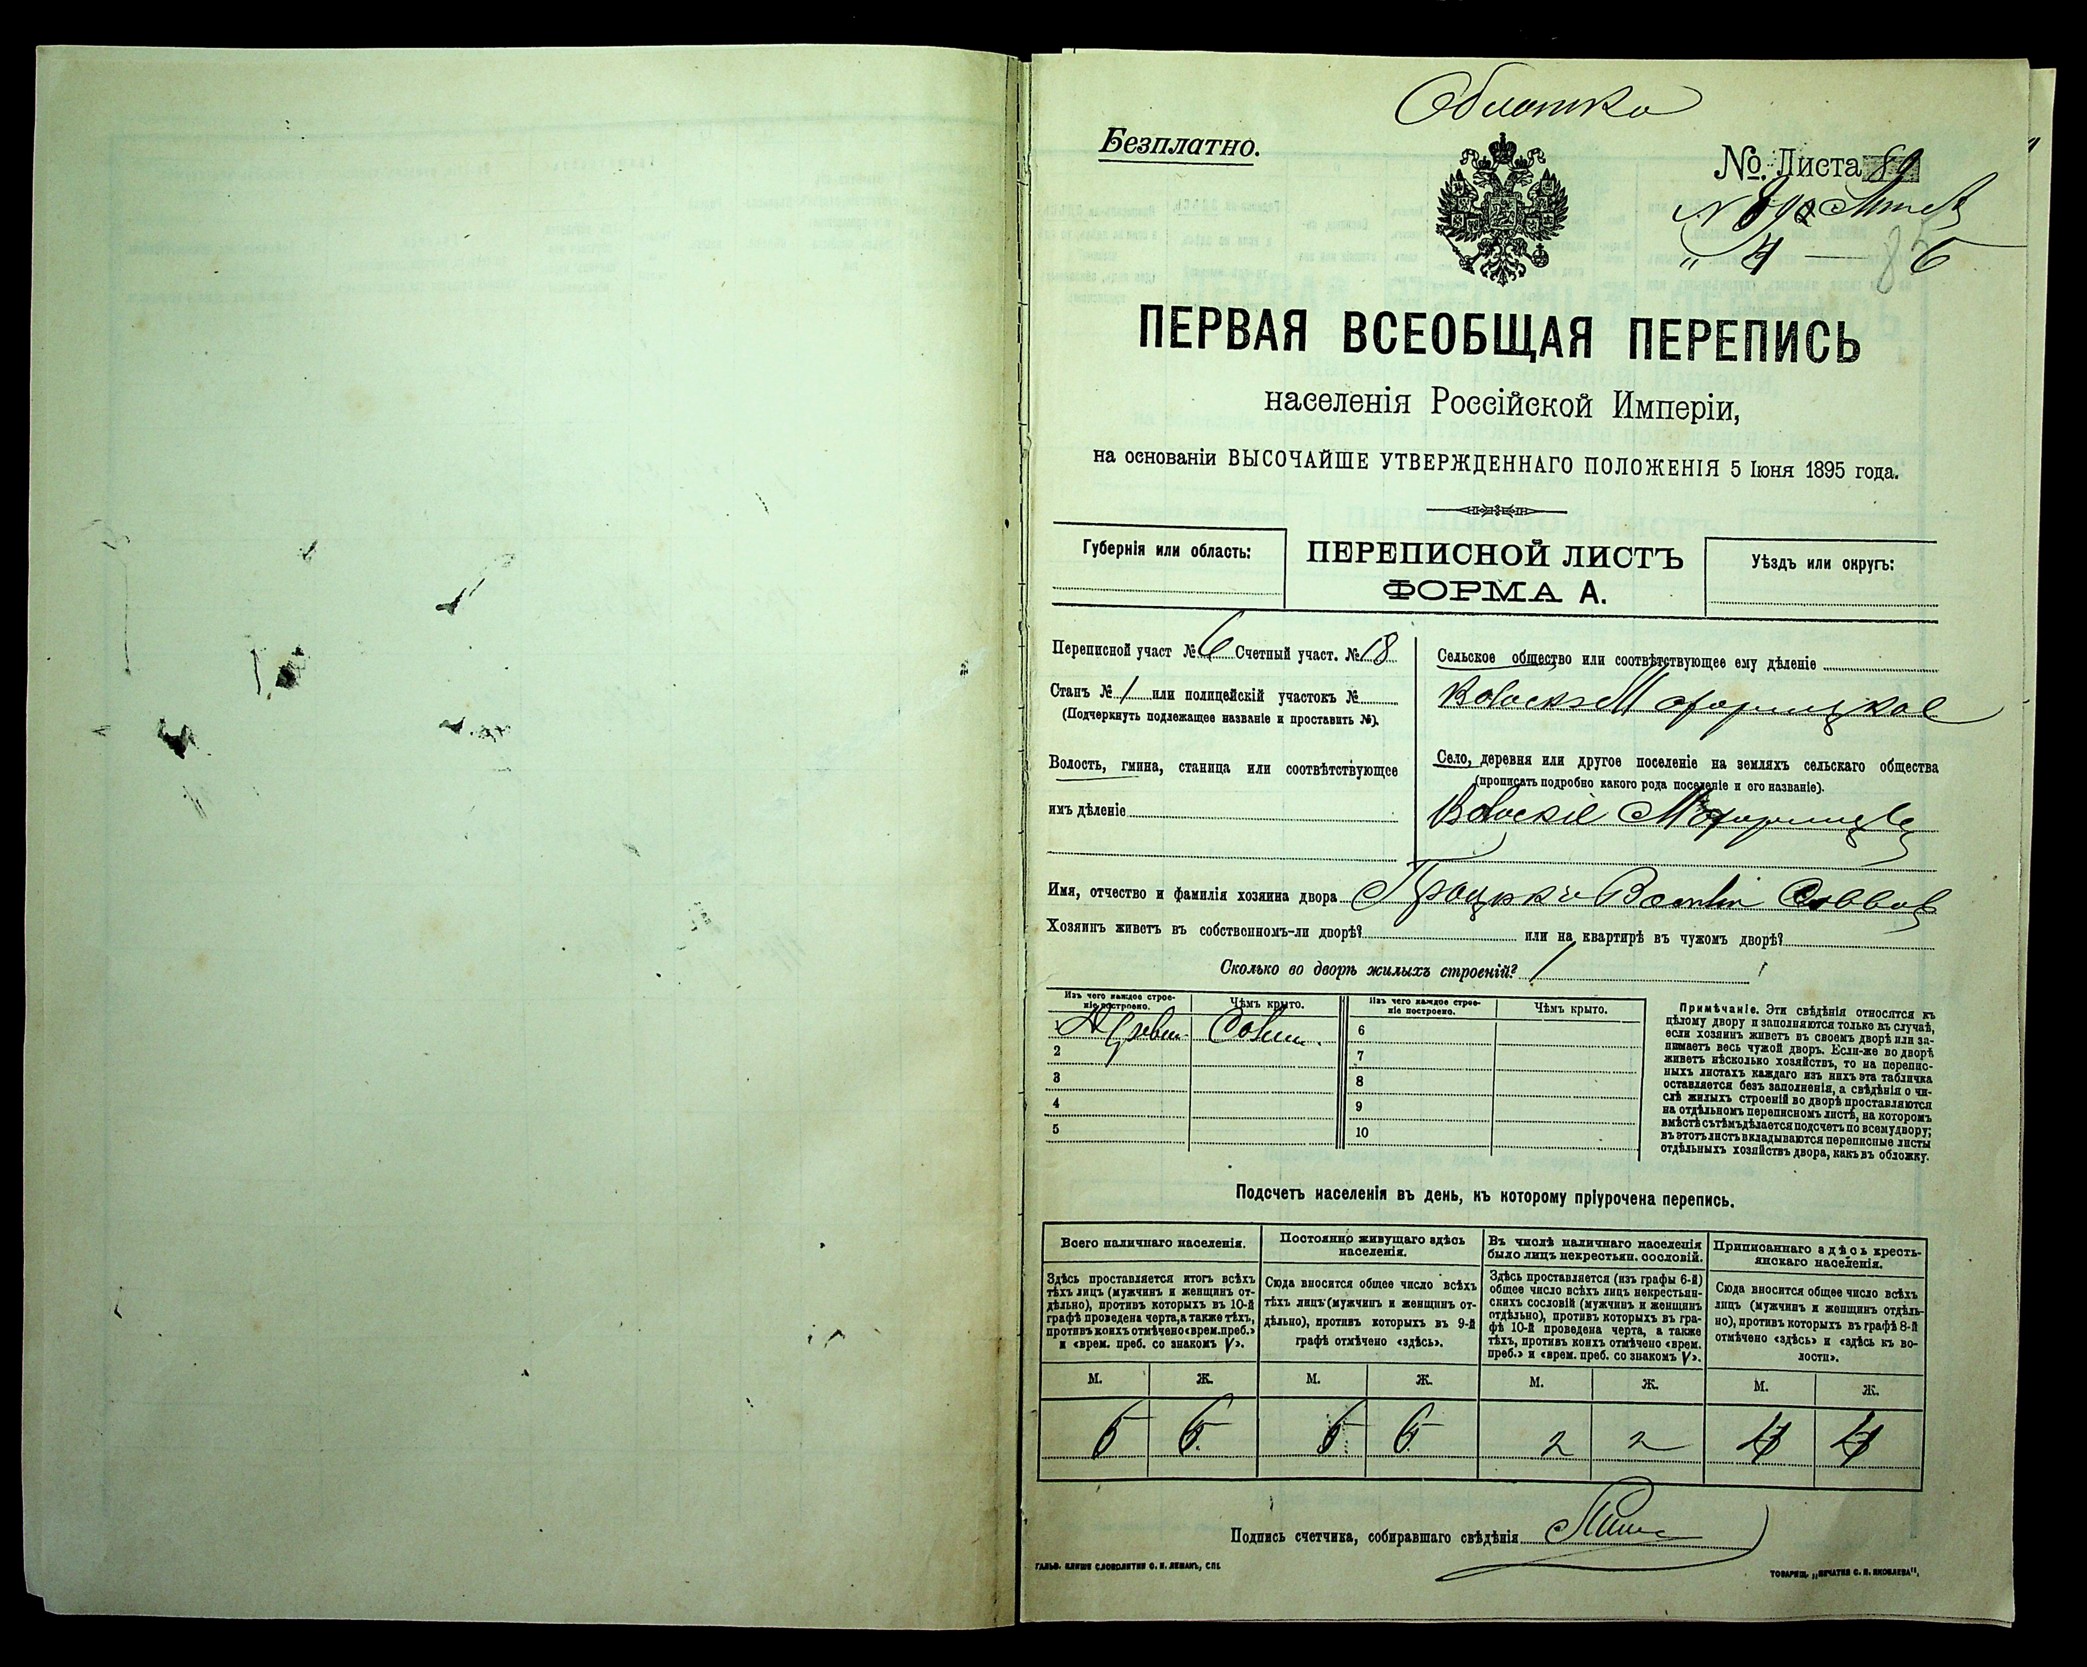 Обложка
Безплатно.
№ Листа 89
ПЕРВАЯ ВСЕОБЩАЯ ПЕРЕПИСЬ
населенія Россійской Имперіи,
на основаніи ВЫСОЧАЙШЕ УТВЕРЖДЕННАГО ПОЛОЖЕНІЯ 5 Іюня 1895 года.
Губернія или область:
ПЕРЕПИСНОЙ ЛИСТЪ
ФОРМА А.
Уѣздъ или округъ:
Переписной участ № 6 Счетный участ. № 18
Станъ № 1 или полицейскій участокъ №
(Подчеркнуть подлежащее названіе и проставить №).
Волость, гмина, станица или соотвѣтствующее
имъ дѣленіе
Сельское общество или соотвѣтствующее ему дѣленіе
Село, деревня или другое поселеніе на земляхъ сельскаго общества
(прописать подробно какого рода поселеніе и его названіе).
Имя, отчество и фамилія хозяина двора
Хозяинъ живетъ въ собственномъ-ли дворѣ? или на квартирѣ въ чужомъ дворѣ?
Сколько во дворѣ жилыхъ строеній? 1
Изъ чего каждое строе-
ніе построено.
Чѣмъ крыто.
Изъ чего каждое строе-
ніе построено.
Чѣмъ крыто.
1
2
3
4
5
6
7
8
9
10
Примѣчаніе. Эти свѣдѣнія относятся къ
цѣлому двору и заполняются только въ случаѣ,
если хозяинъ живетъ въ своемъ дворѣ или за-
нимаетъ весь чужой дворъ. Если-же во дворѣ
живетъ нѣсколько хозяйствъ, то на перепис-
ныхъ листахъ каждаго изъ нихъ эта табличка
оставляется безъ заполненія, а свѣдѣнія о чи-
слѣ жилыхъ строеній во дворѣ проставляются
на отдѣльномъ переписномъ листѣ, на которомъ
вмѣстѣ съ тѣмъ дѣлается подсчетъ по всему двору;
въ этотъ листъ вкладываются переписные листы
отдѣльныхъ хозяйствъ двора, какъ въ обложку.
Подсчетъ населенія въ день, къ которому пріурочена перепись.
Всего наличнаго населенія.
Здѣсь проставляется итогъ всѣхъ
тѣхъ лицъ (мужчинъ и женщинъ от-
дѣльно), противъ которыхъ въ 10-й
графѣ проведена черта, а также тѣхъ,
противъ коихъ отмѣчено «врем. преб.»
и «врем. преб. со знакомъ V».
Постоянно живущаго здѣсь
населенія.
Сюда вносится общее число всѣхъ
тѣхъ лицъ (мужчинъ и женщинъ от-
дѣльно), противъ которыхъ въ 9-й
графѣ отмѣчено «здѣсь».
Въ числѣ наличнаго населенія
было лицъ некрестьян. сословій.
Здѣсь проставляется (изъ графы 6-й)
общее число всѣхъ лицъ некрестьян-
скихъ сословій (мужчинъ и женщинъ
отдѣльно), противъ которыхъ въ гра-
фѣ 10-й проведена черта, а также
тѣхъ, противъ коихъ отмѣчено «врем.
преб.» и «врем. преб. со знакомъ V».
Приписаннаго здѣсь кресть-
янскаго населенія.
Сюда вносится общее число всѣхъ
лицъ (мужчинъ и женщинъ отдѣль-
но), противъ которыхъ въ графѣ 8-й
отмѣчено «здѣсь» и «здѣсь къ во-
лости».
М. Ж. М. Ж. М. Ж. М. Ж.
6 6 6 6 2 2 4 4
Подпись счетчика, собиравшаго свѣдѣнія
ГАЛЬВ. КЛИШЕ СЛОВОЛИТНИ О. И. ЛЕМАНЪ, СПБ.
ТОВАРИЩ. „ПЕЧАТНЯ С. П. ЯКОВЛЕВА",